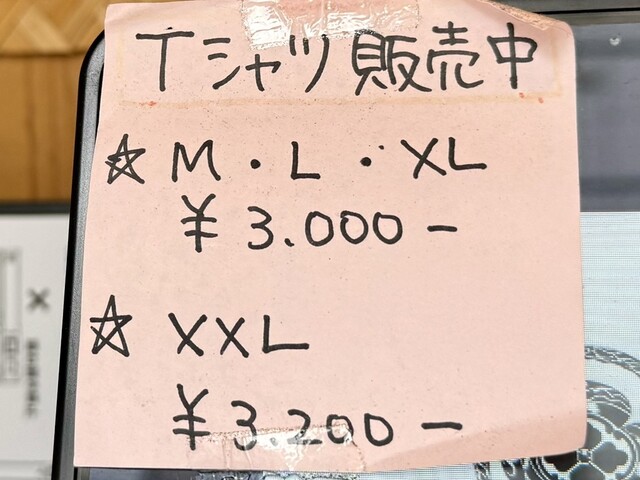 Tシャツ販売中
☆ M・L・XL
¥3.000-
☆ XXL
¥3.200-